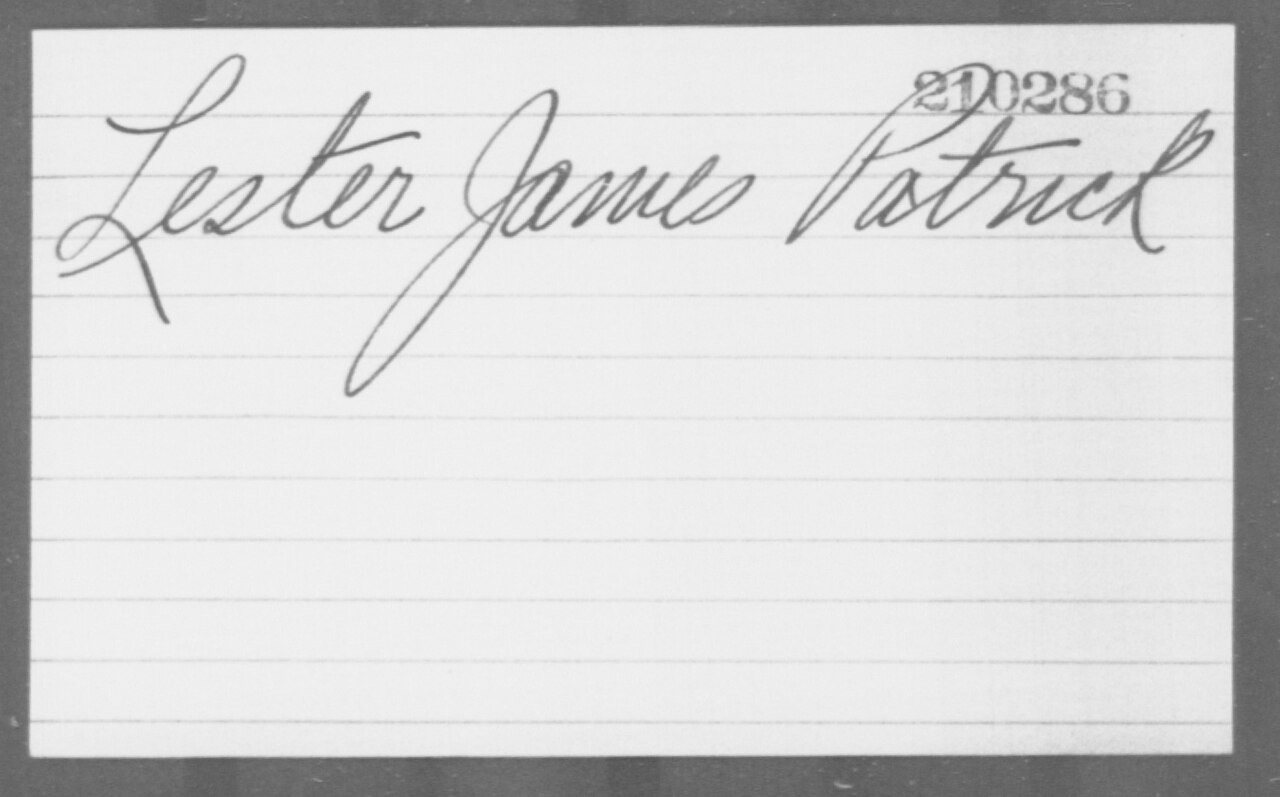 210286
Lester James Patrick